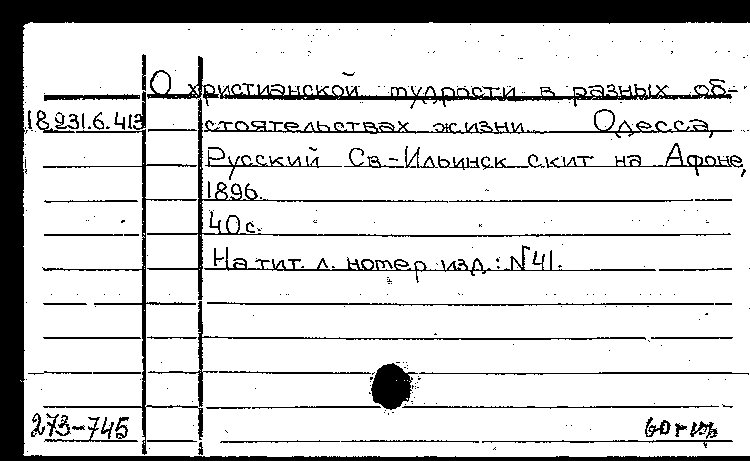 О христианской мудрости в разных об-
18.231.6.413 стоятельствах жизни. Одесса,
Русский Св-Ильинск. скит на Афоне,
1896.
40с.
На тит. л. номер изд.: №41.
273-745